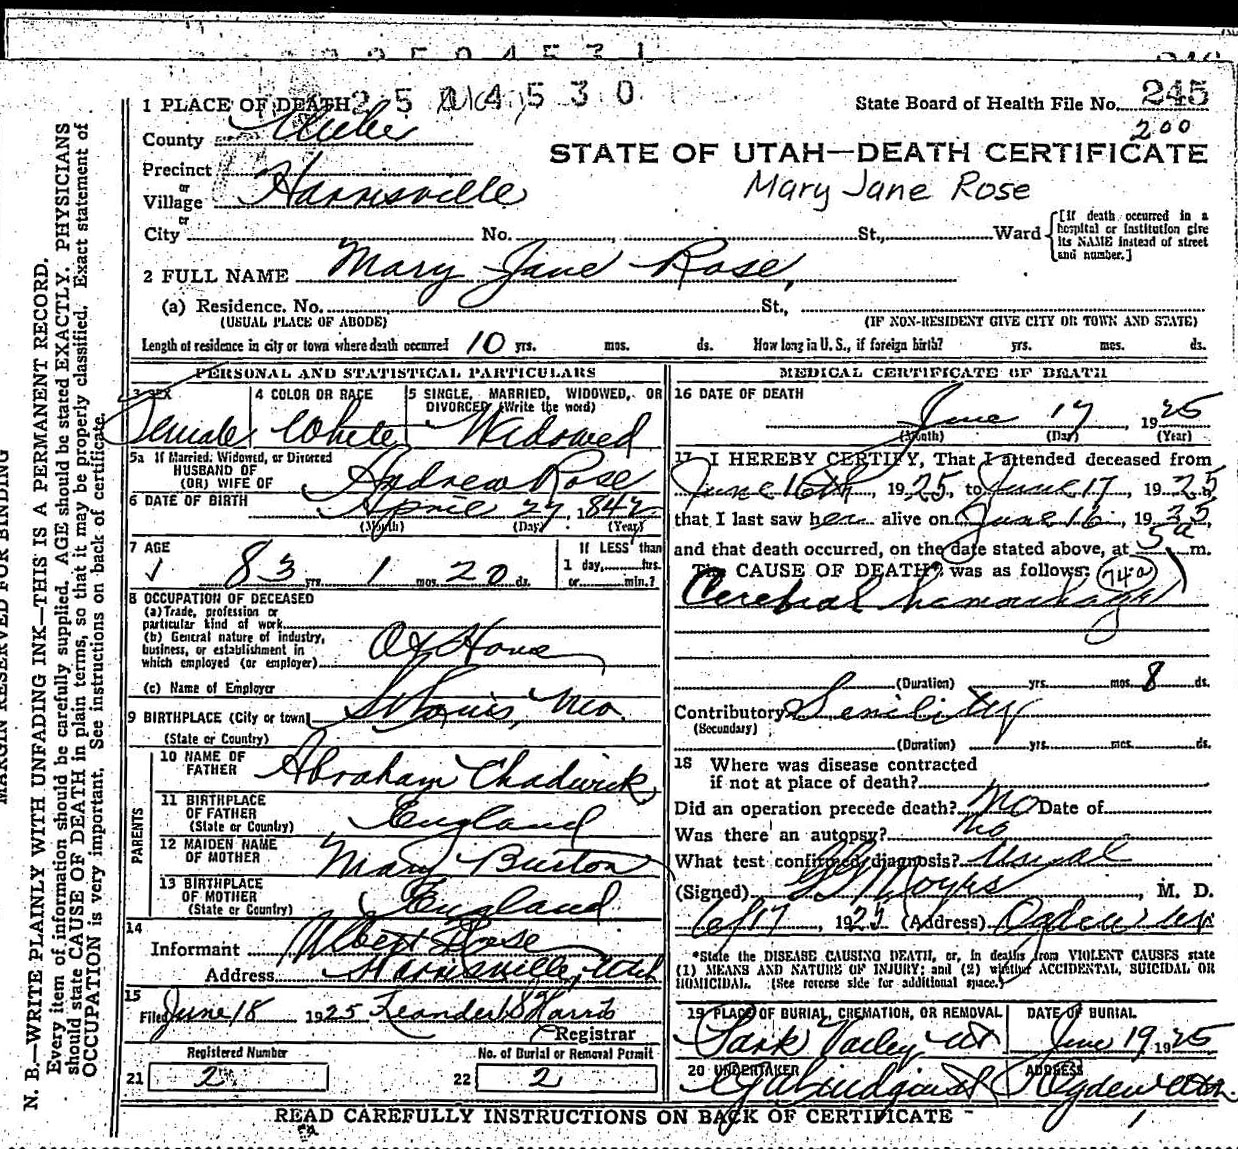 2 5 0 4 5 3 0
1 PLACE OF DEATH
State Board of Health File No. 245
200
County Weber
STATE OF UTAH—DEATH CERTIFICATE
Precinct
or
Village Harrisville
Mary Jane Rose
or
City No. St., Ward
[If death occurred in a hospital or institution give its NAME instead of street and number.]
2 FULL NAME Mary Jane Rose,
(a) Residence. No. St.,
(USUAL PLACE OF ABODE) (IF NON-RESIDENT GIVE CITY OR TOWN AND STATE)
Length of residence in city or town where death occurred 10 yrs. mos. ds. How long in U. S., if foreign birth? yrs. mos. ds.
PERSONAL AND STATISTICAL PARTICULARS
3 SEX
Female
4 COLOR OR RACE
White
5 SINGLE, MARRIED, WIDOWED, OR
DIVORCED (Write the word)
Widowed
5a If Married, Widowed, or Divorced
HUSBAND OF
(OR) WIFE OF Andrew Rose
6 DATE OF BIRTH April 27, 1842
(Month) (Day) (Year)
7 AGE
83 yrs. 1 mos. 20 ds.
If LESS than
1 day, hrs.
or min.?
8 OCCUPATION OF DECEASED
(a) Trade, profession or
particular kind of work
(b) General nature of industry,
business, or establishment in
which employed (or employer) At Home
(c) Name of Employer
9 BIRTHPLACE (City or town) St Louis, Mo.
(State or Country)
PARENTS
10 NAME OF
FATHER Abraham Chadwick
11 BIRTHPLACE
OF FATHER England
(State or Country)
12 MAIDEN NAME
OF MOTHER Mary Burton
13 BIRTHPLACE
OF MOTHER England
(State or Country)
14
Informant Albert Rose
Address Harrisville, Utah
15
Filed June 18 1925 Leander S Harris
Registrar
Registered Number
21 2
No. of Burial or Removal Permit
22 2
MEDICAL CERTIFICATE OF DEATH
16 DATE OF DEATH
June 17, 1925
(Month) (Day) (Year)
17 I HEREBY CERTIFY, That I attended deceased from
June 16th, 1925, to June 17, 1925,
that I last saw her alive on June 16, 1925,
and that death occurred, on the date stated above, at 5 a m.
The CAUSE OF DEATH* was as follows: 74a
Cerebral hemorrhage
(Duration) yrs. mos. 8 ds.
Contributory Senility
(Secondary)
(Duration) yrs. mos. ds.
18 Where was disease contracted
if not at place of death?
Did an operation precede death? No Date of
Was there an autopsy? No
What test confirmed diagnosis? Usual
(Signed) , M. D.
6/17, 1925 (Address) Ogden Ut
*State the DISEASE CAUSING DEATH, or, in deaths from VIOLENT CAUSES state
(1) MEANS AND NATURE OF INJURY; and (2) whether ACCIDENTAL, SUICIDAL OR
HOMICIDAL. (See reverse side for additional space.)
19 PLACE OF BURIAL, CREMATION, OR REMOVAL
Park Valley Ut
DATE OF BURIAL
June 19 1925
20 UNDERTAKER
Lindquist
ADDRESS
Ogden Utah.
READ CAREFULLY INSTRUCTIONS ON BACK OF CERTIFICATE
MARGIN RESERVED FOR BINDING
N. B.—WRITE PLAINLY WITH UNFADING INK—THIS IS A PERMANENT RECORD.
Every item of information should be carefully supplied. AGE should be stated EXACTLY. PHYSICIANS
should state CAUSE OF DEATH in plain terms, so that it may be properly classified. Exact statement of
OCCUPATION is very important. See instructions on back of certificate.